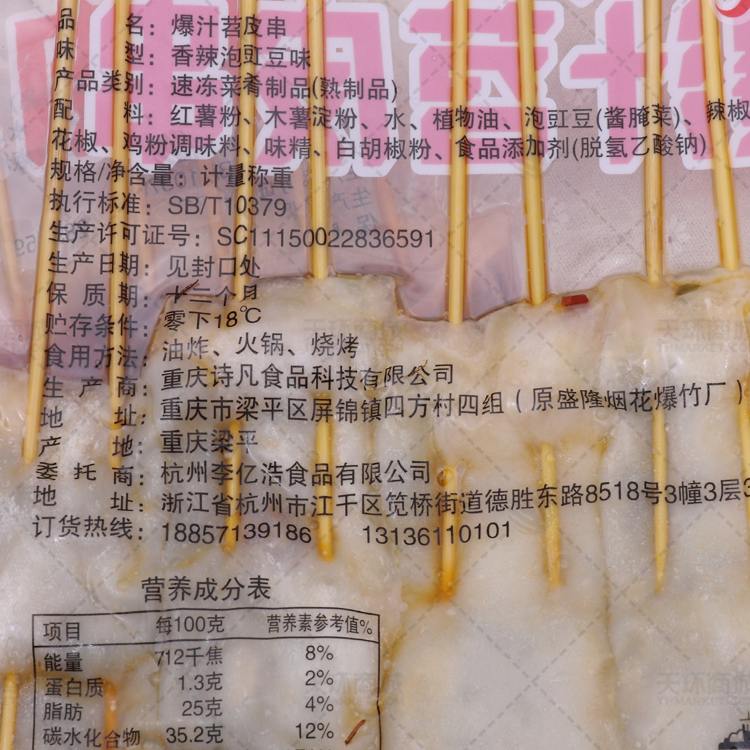 爆汁苕皮
品名：爆汁苕皮串
味型：香辣泡豇豆味
产品类别：速冻菜肴制品(熟制品)
配料：红薯粉、木薯淀粉、水、植物油、泡豇豆(酱腌菜)、辣椒
花椒、鸡粉调味料、味精、白胡椒粉、食品添加剂(脱氢乙酸钠)
规格/净含量：计量称重
执行标准：SB/T10379
生产许可证号：SC11150022836591
生产日期：见封口处
保质期：十二个月
贮存条件：零下18℃
食用方法：油炸、火锅、烧烤
生产商：重庆诗凡食品科技有限公司
地址：重庆市梁平区屏锦镇四方村四组（原盛隆烟花爆竹厂）
产地：重庆梁平
委托商：杭州李亿浩食品有限公司
地址：浙江省杭州市江干区笕桥街道德胜东路8518号3幢3层3
订货热线：18857139186 13136110101
营养成分表
项目 每100克 营养素参考值%
能量 712千焦 8%
蛋白质 1.3克 2%
脂肪 25克 4%
碳水化合物 35.2克 12%